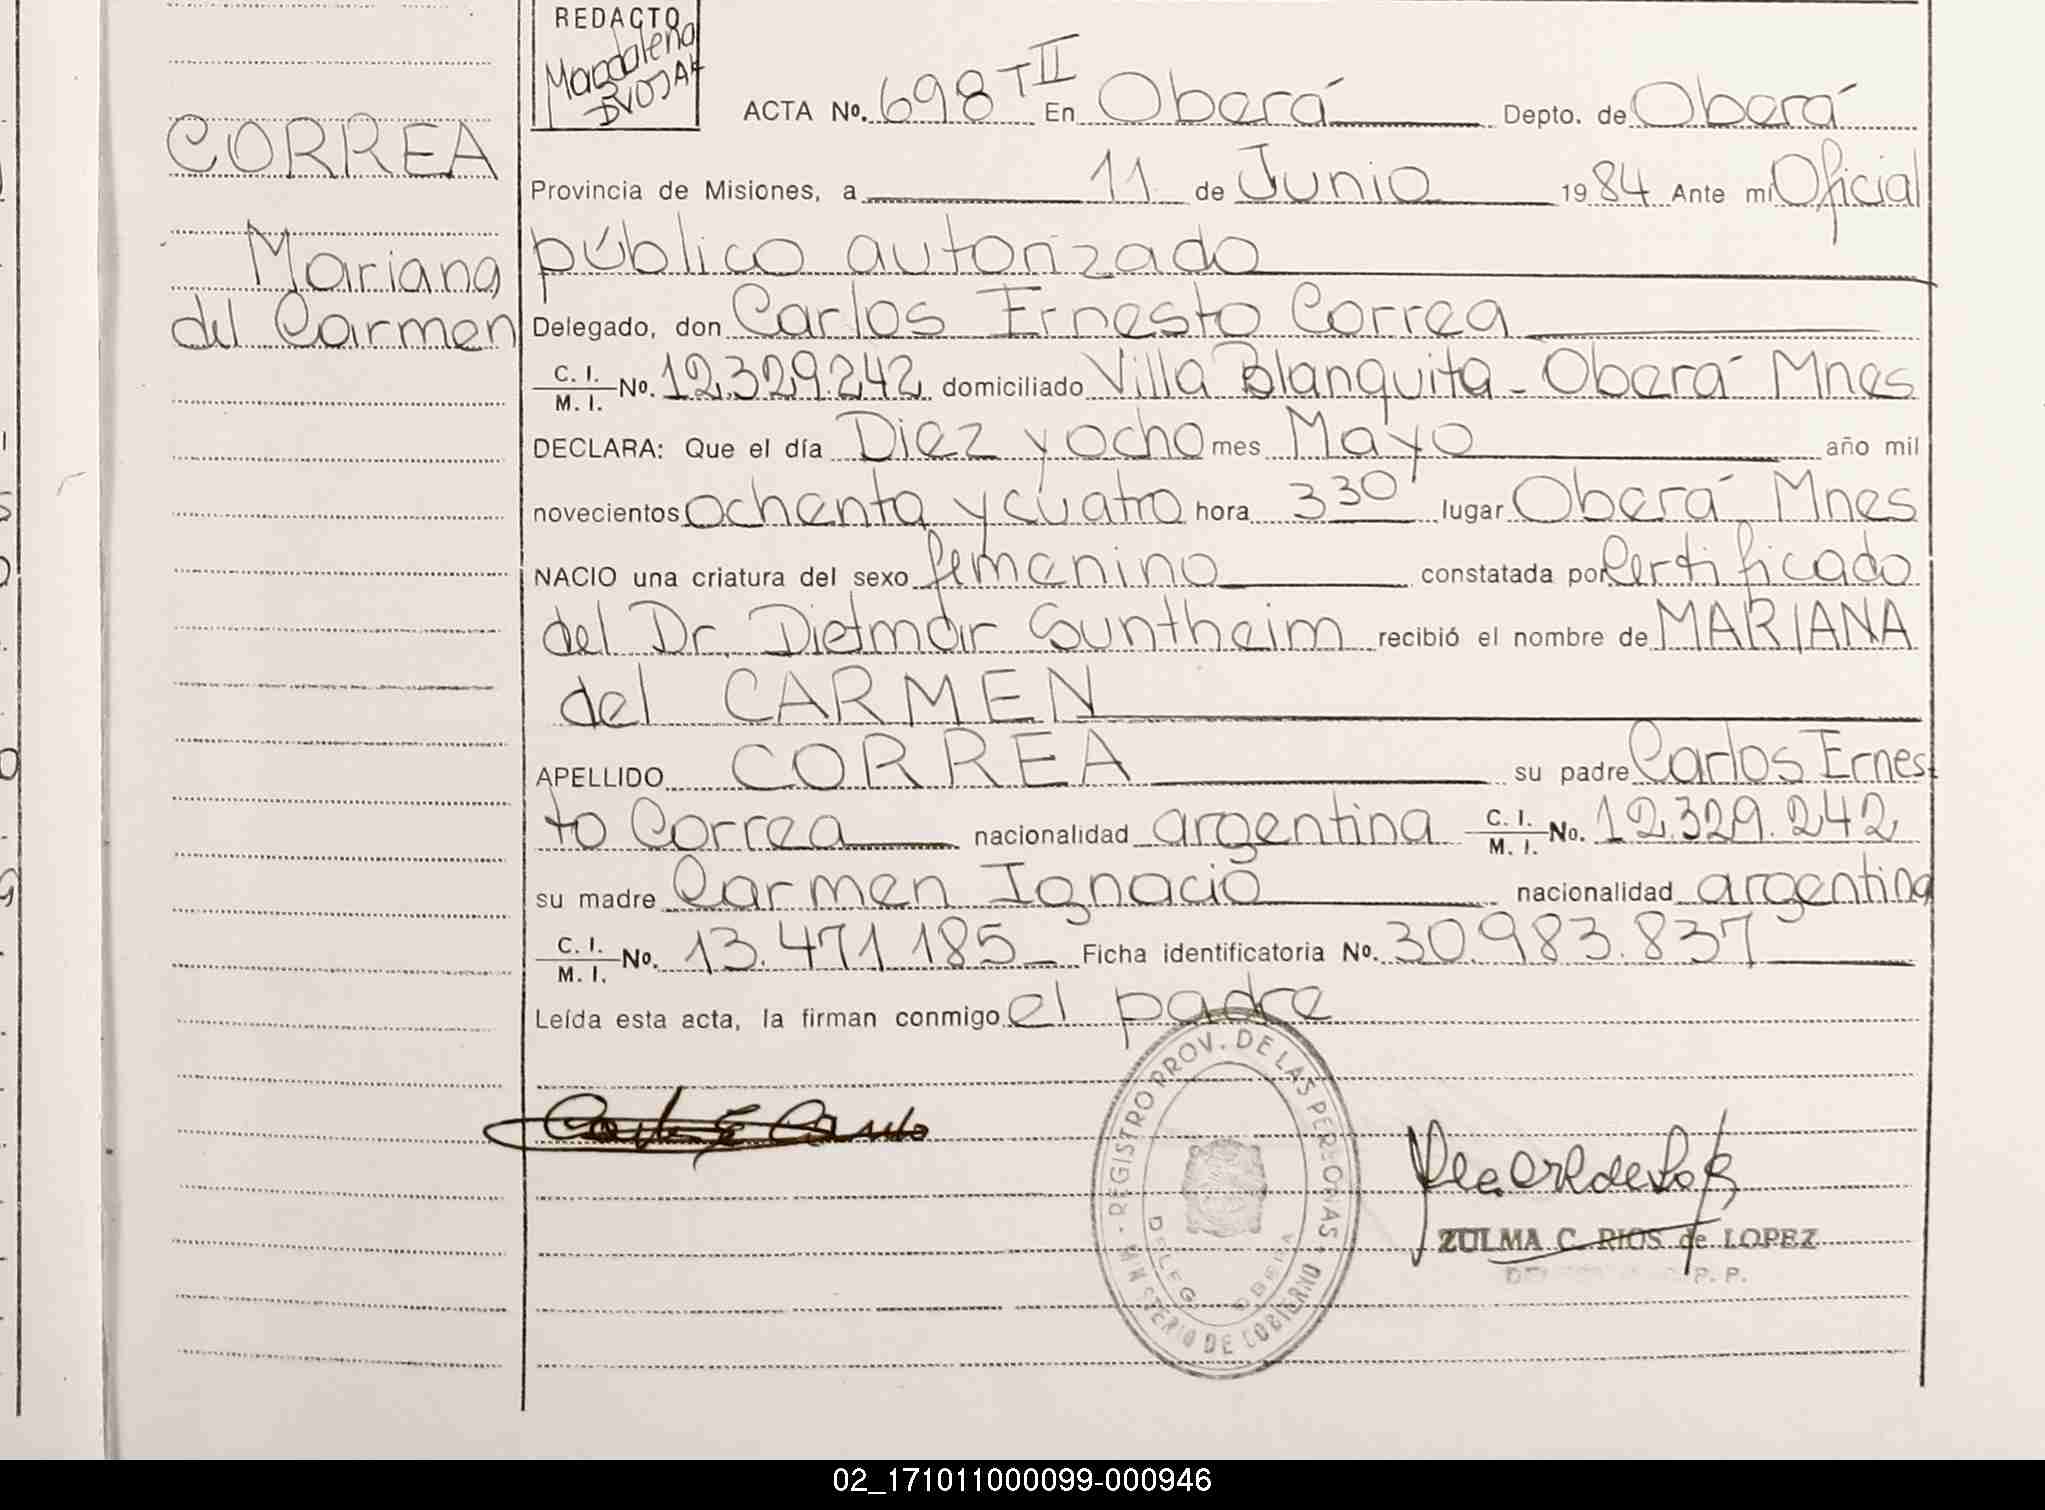 REDACTO
Magdalena
DVOJAK
ACTA No. 698 T II En Oberá Depto. de Oberá
CORREA
Provincia de Misiones, a 11 de Junio 1984 Ante mi Oficial
Mariana
público autorizado
del Carmen
Delegado, don Carlos Ernesto Correa
C. I.
M. I. No. 12.329.242 domiciliado Villa Blanquita - Oberá Mnes
DECLARA: Que el día Diez y ocho mes Mayo año mil
novecientos ochenta y cuatro hora 3 30 lugar Oberá Mnes
NACIO una criatura del sexo femenino constatada por Certificado
del Dr. Dietmar Suntheim recibió el nombre de MARIANA
del CARMEN
APELLIDO CORREA su padre Carlos Ernes
to Correa nacionalidad argentina C. I. M. I. No. 12.329.242
su madre Carmen Ignacio nacionalidad argentina
C. I.
M. I. No. 13.471 185 Ficha identificatoria No. 30.983.837
Leída esta acta, la firman conmigo el padre
REGISTRO PROV. DE LAS PERSONAS
MINISTERIO DE GOBIERNO
DELEG. OBERA
ZULMA C. RIOS de LOPEZ
02_171011000099-000946